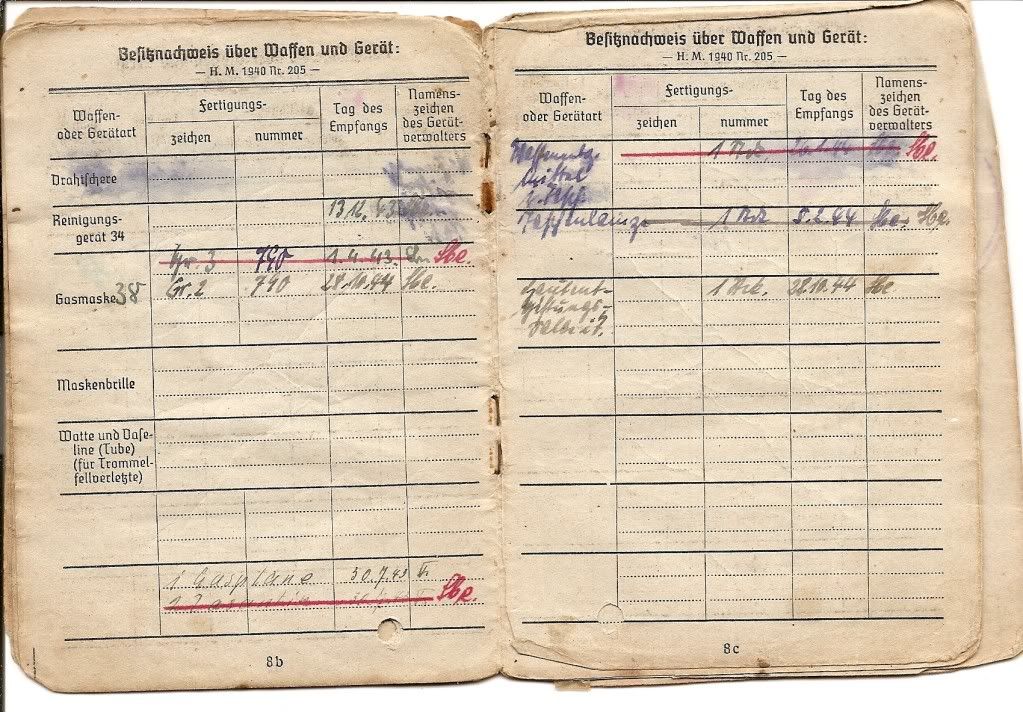 Besitznachweis über Waffen und Gerät:
— H. M. 1940 Nr. 205 —
Waffen-
oder Gerätart
Fertigungs-
zeichen
nummer
Tag des
Empfangs
Namens-
zeichen
des Gerät-
verwalters
Drahtschere
Reinigungs-
gerät 34
13.12.43
Gr. 3 790 1.4.43. Sbe.
Gasmaske 38 Gr. 2 790 28.10.44 Sbe.
Maskenbrille
Watte und Vase-
line (Tube)
(für Trommel-
fellverletzte)
1 Gasplane 30.7.43
1 Sbe.
8b
Besitznachweis über Waffen und Gerät:
— H. M. 1940 Nr. 205 —
Waffen-
oder Gerätart
Fertigungs-
zeichen
nummer
Tag des
Empfangs
Namens-
zeichen
des Gerät-
verwalters
1 Sbe.
mittel
1 5.2.44 Sbe. Sbe.
Hautent-
giftungs-
1 28.10.44 Sbe
8c